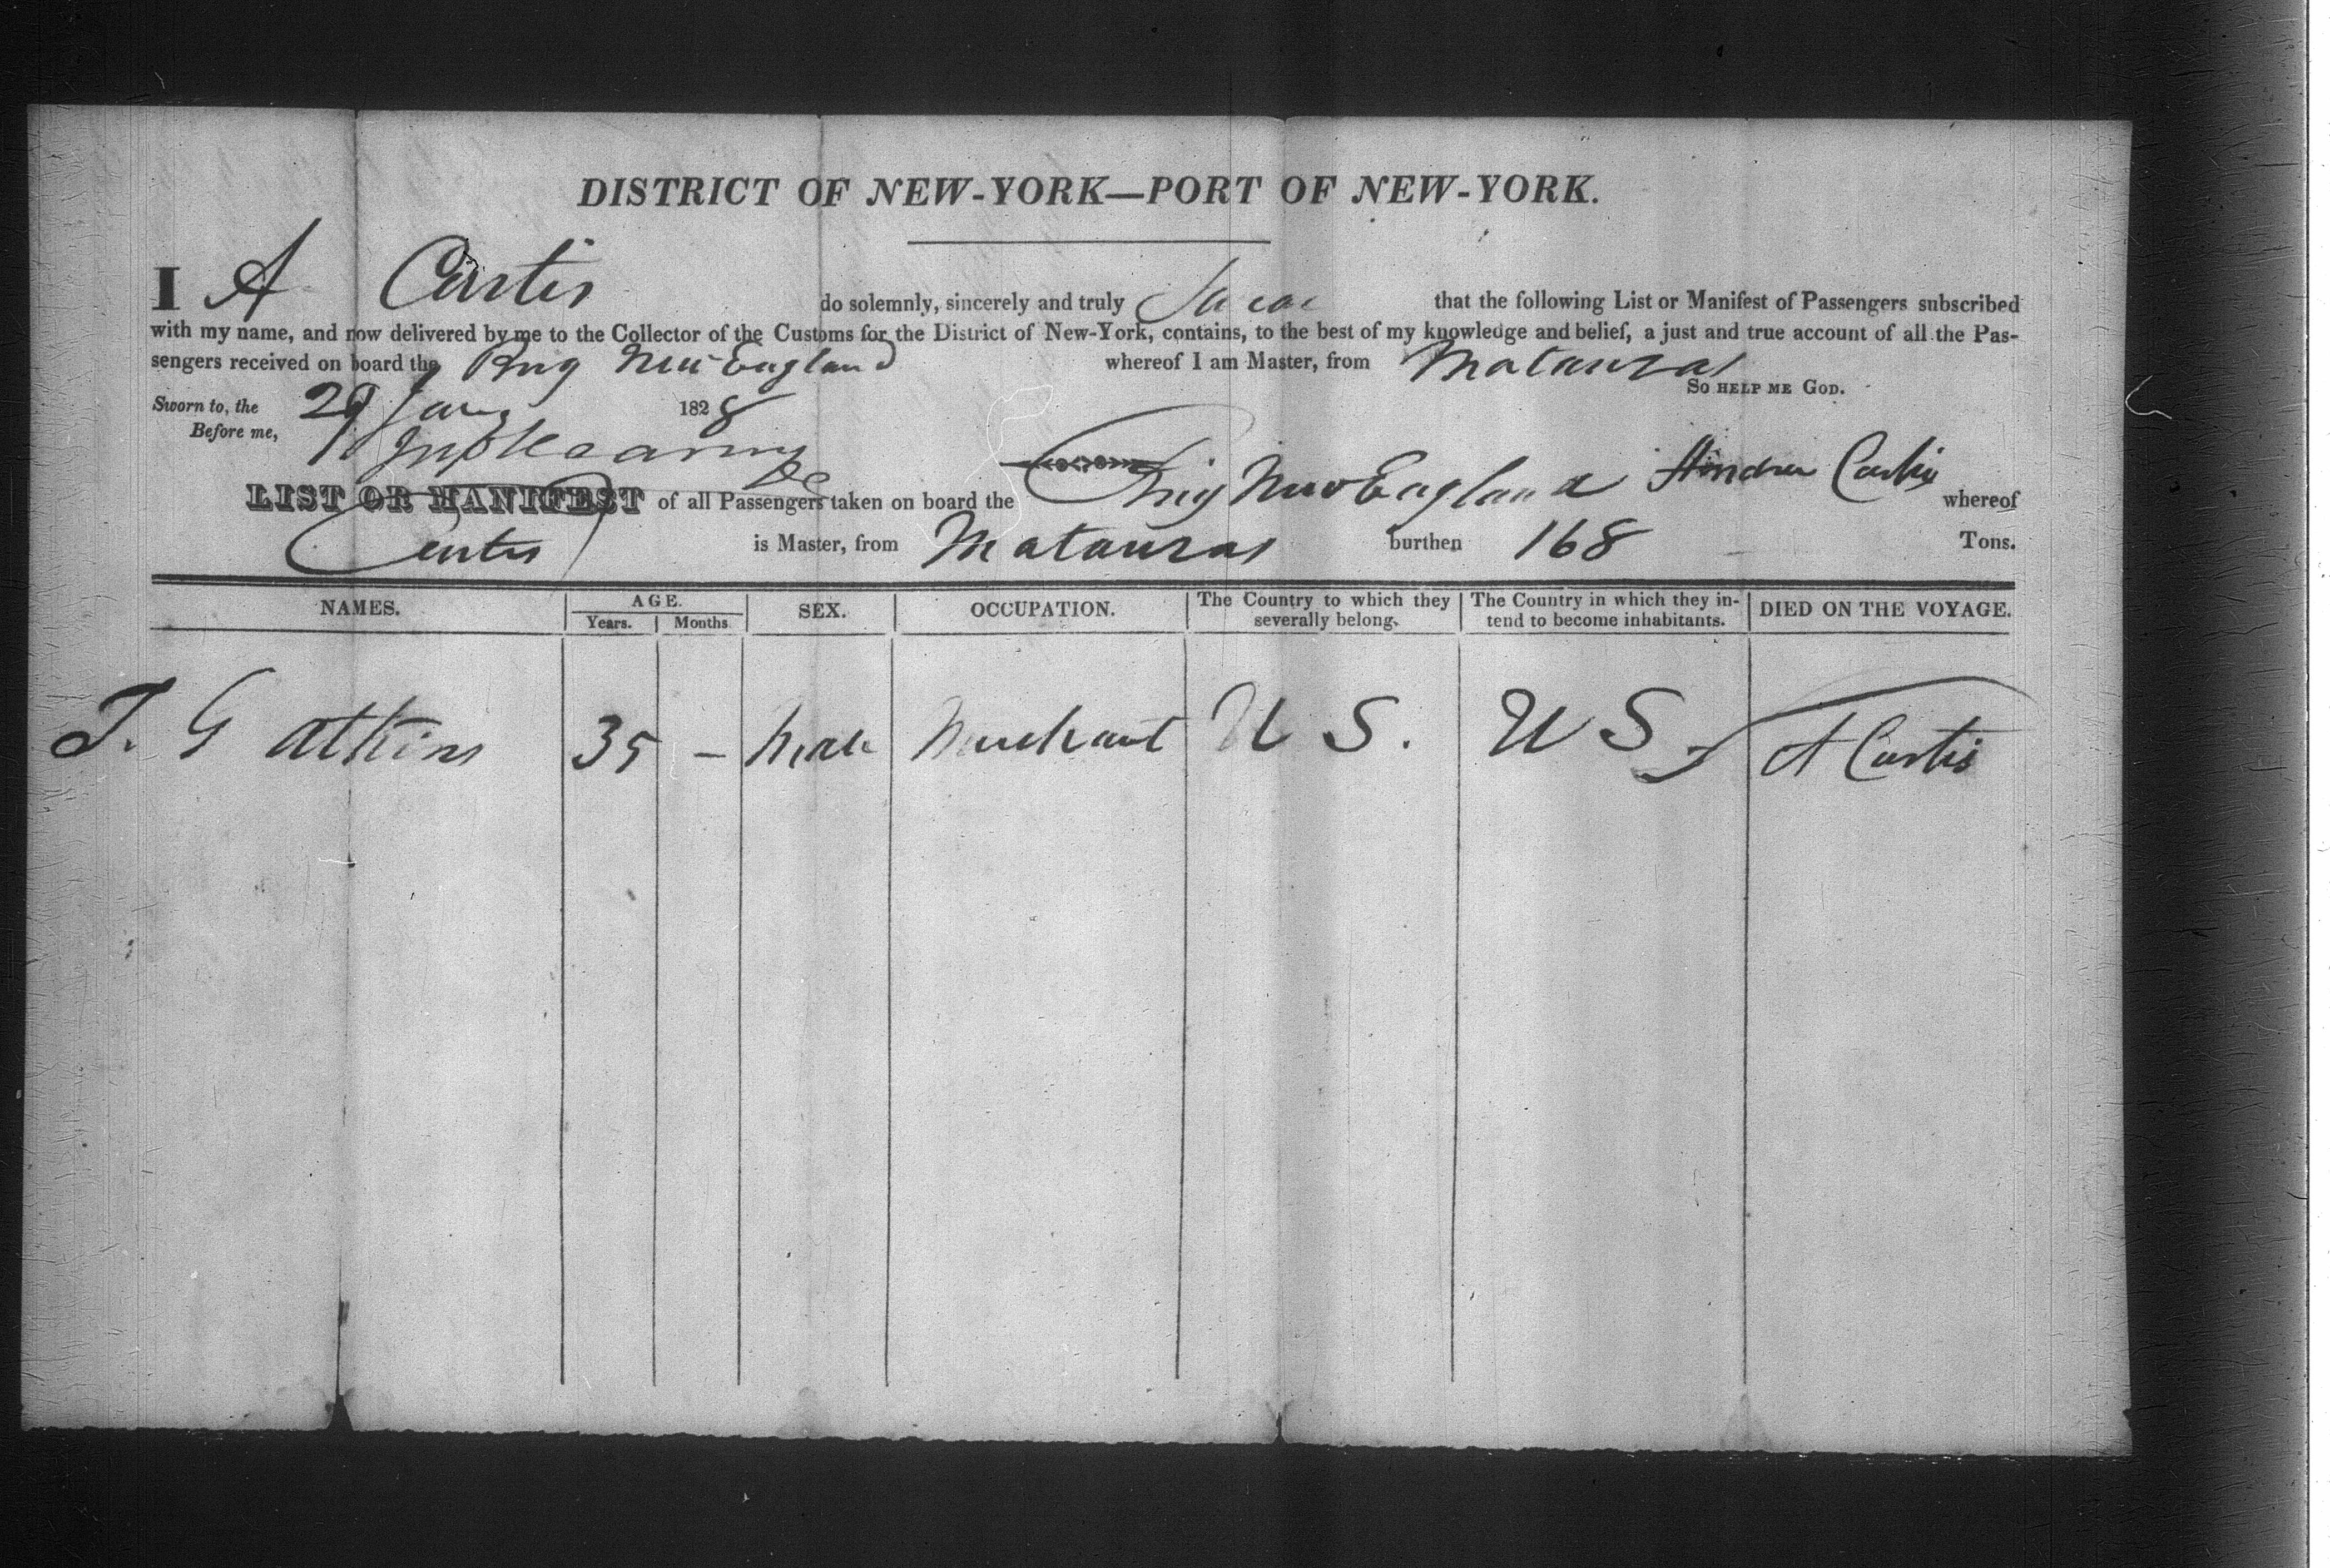 DISTRICT OF NEW-YORK—PORT OF NEW-YORK.
I A Curtis do solemnly, sincerely and truly Swear that the following List or Manifest of Passengers subscribed
with my name, and now delivered by me to the Collector of the Customs for the District of New-York, contains, to the best of my knowledge and belief, a just and true account of all the Pas-
sengers received on board the Brig New England whereof I am Master, from Matanzas
So help me God.
Sworn to, the 29 Jany 1828
Before me,
Andrew Curtis
LIST OR MANIFEST of all Passengers taken on board the Brig New England whereof
Curtis is Master, from Matanzas burthen 168 Tons.
NAMES. AGE. SEX. OCCUPATION. The Country to which they severally belong. The Country in which they in-tend to become inhabitants. DIED ON THE VOYAGE.
Years. Months
J. G Atkins 35 – Male Merchant U S. U S.
A Curtis